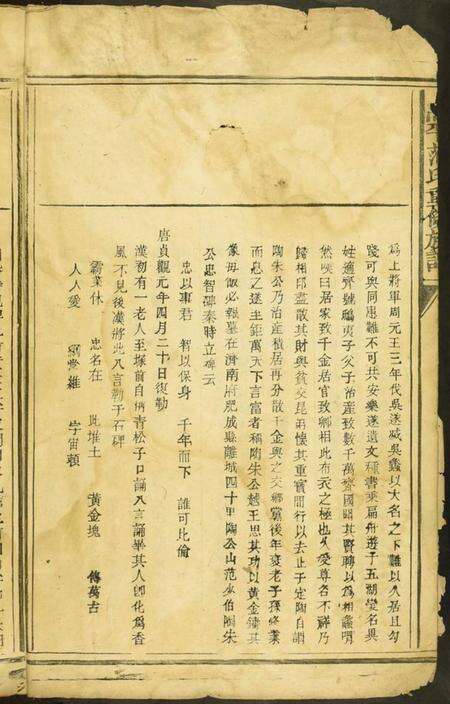 爲上將軍周元王三年伐吳遂滅吳蠡以大名之下難以久居且勾
踐可與同患難不可共安樂遂遺文種書乘扁舟遊于五湖變名吳
姓適齊號鴟夷子父子治產致數千萬齊國聞其賢轉以爲相蠡喟
然嘆曰居家致千金居官致卿相此布衣之極也久受尊名不祥乃
歸相印盡散其財與貧交昆弟懷其重寶間行以去止于定陶自謂
陶朱公乃治產積居再分散千金與之交鄉黨後年衰老子孫修業
而息之遂至鉅萬天下言富者稱陶朱公越王思其功以黃金鑄其
像每飯必報墓在濟南府肥成縣離城四十里陶公山范少伯陶朱
公忠智碑秦時立碑云
忠以事君 智以保身 千年而下 誰可比倫
唐貞觀元年四月二十日復勒
漢初有一老人至塚前自稱青松子口誦八言誦畢其人卽化爲香
風不見後漢將此八言勒于石碑
霸業休 忠名在 此堆土 黃金塊 傳萬古
人人愛 綱常維 宇宙賴
范氏重修族譜